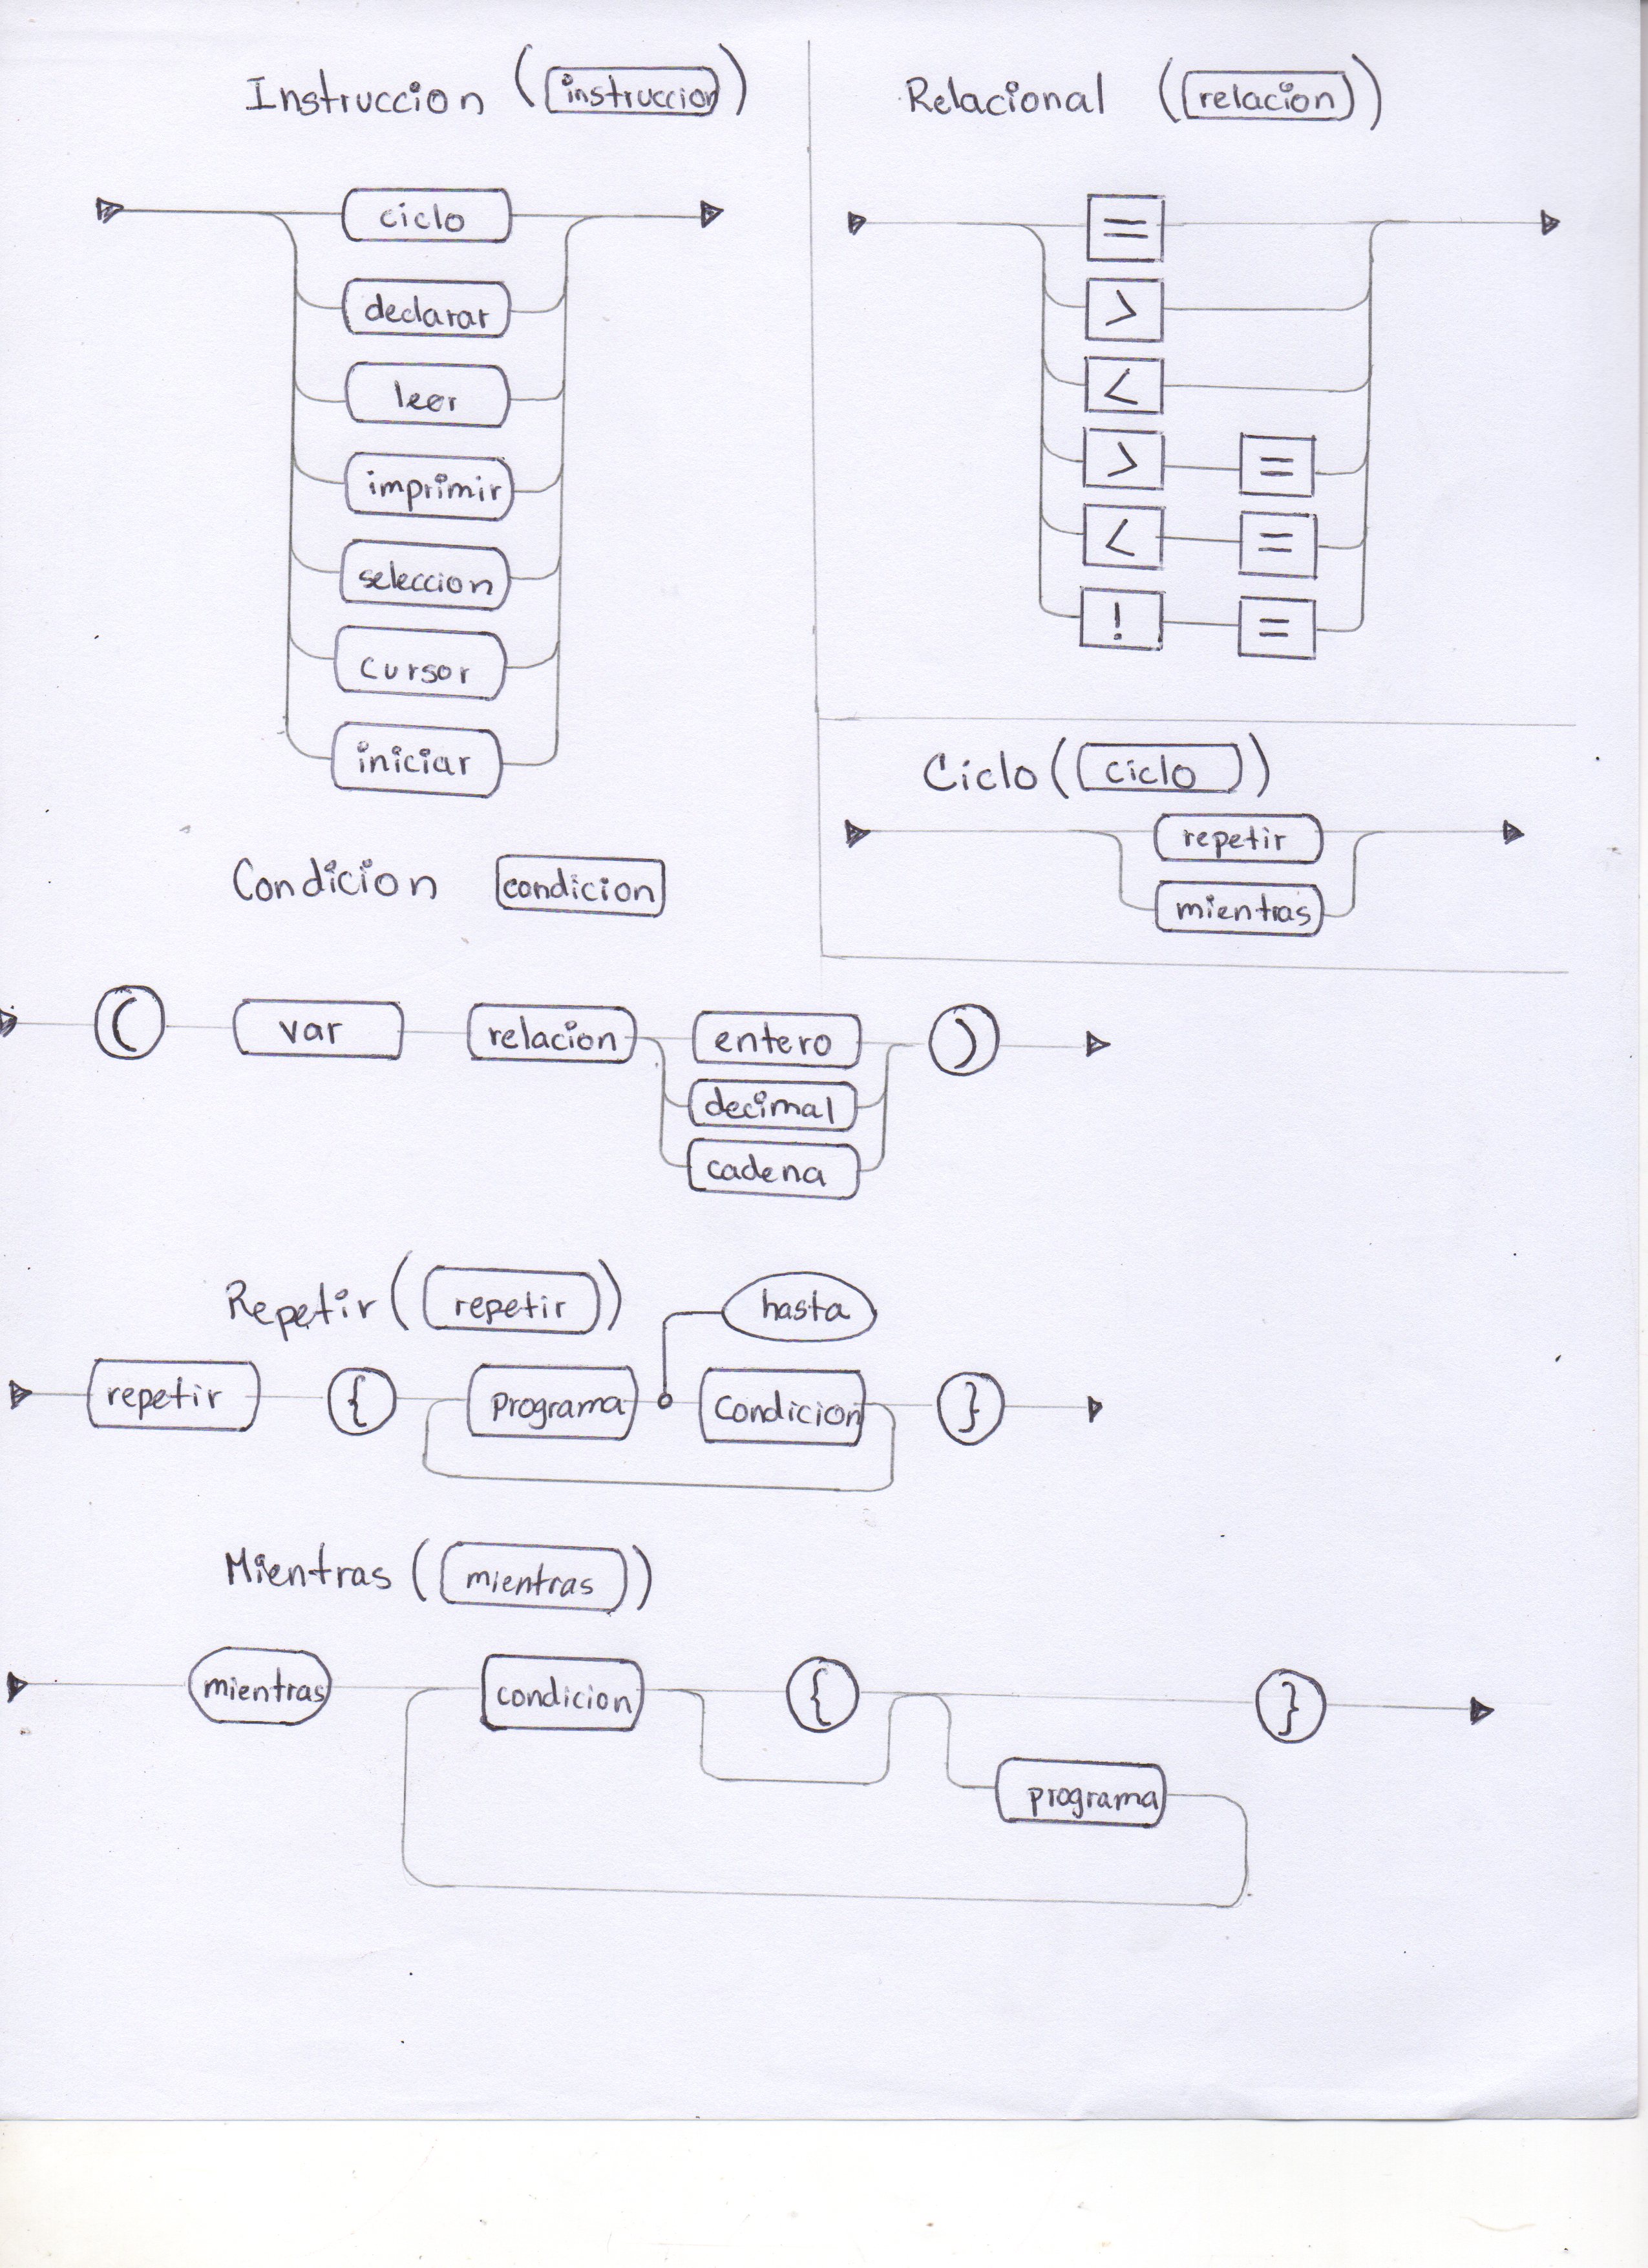 Instruccion (instruccion)
ciclo
declarar
leer
imprimir
seleccion
cursor
iniciar
Relacional (relacion)
=
>
<
> =
< =
! =
Ciclo (ciclo)
repetir
mientras
Condicion condicion
( var relacion entero )
decimal
cadena
Repetir (repetir)
hasta
repetir { programa condicion }
Mientras (mientras)
mientras condicion { }
programa